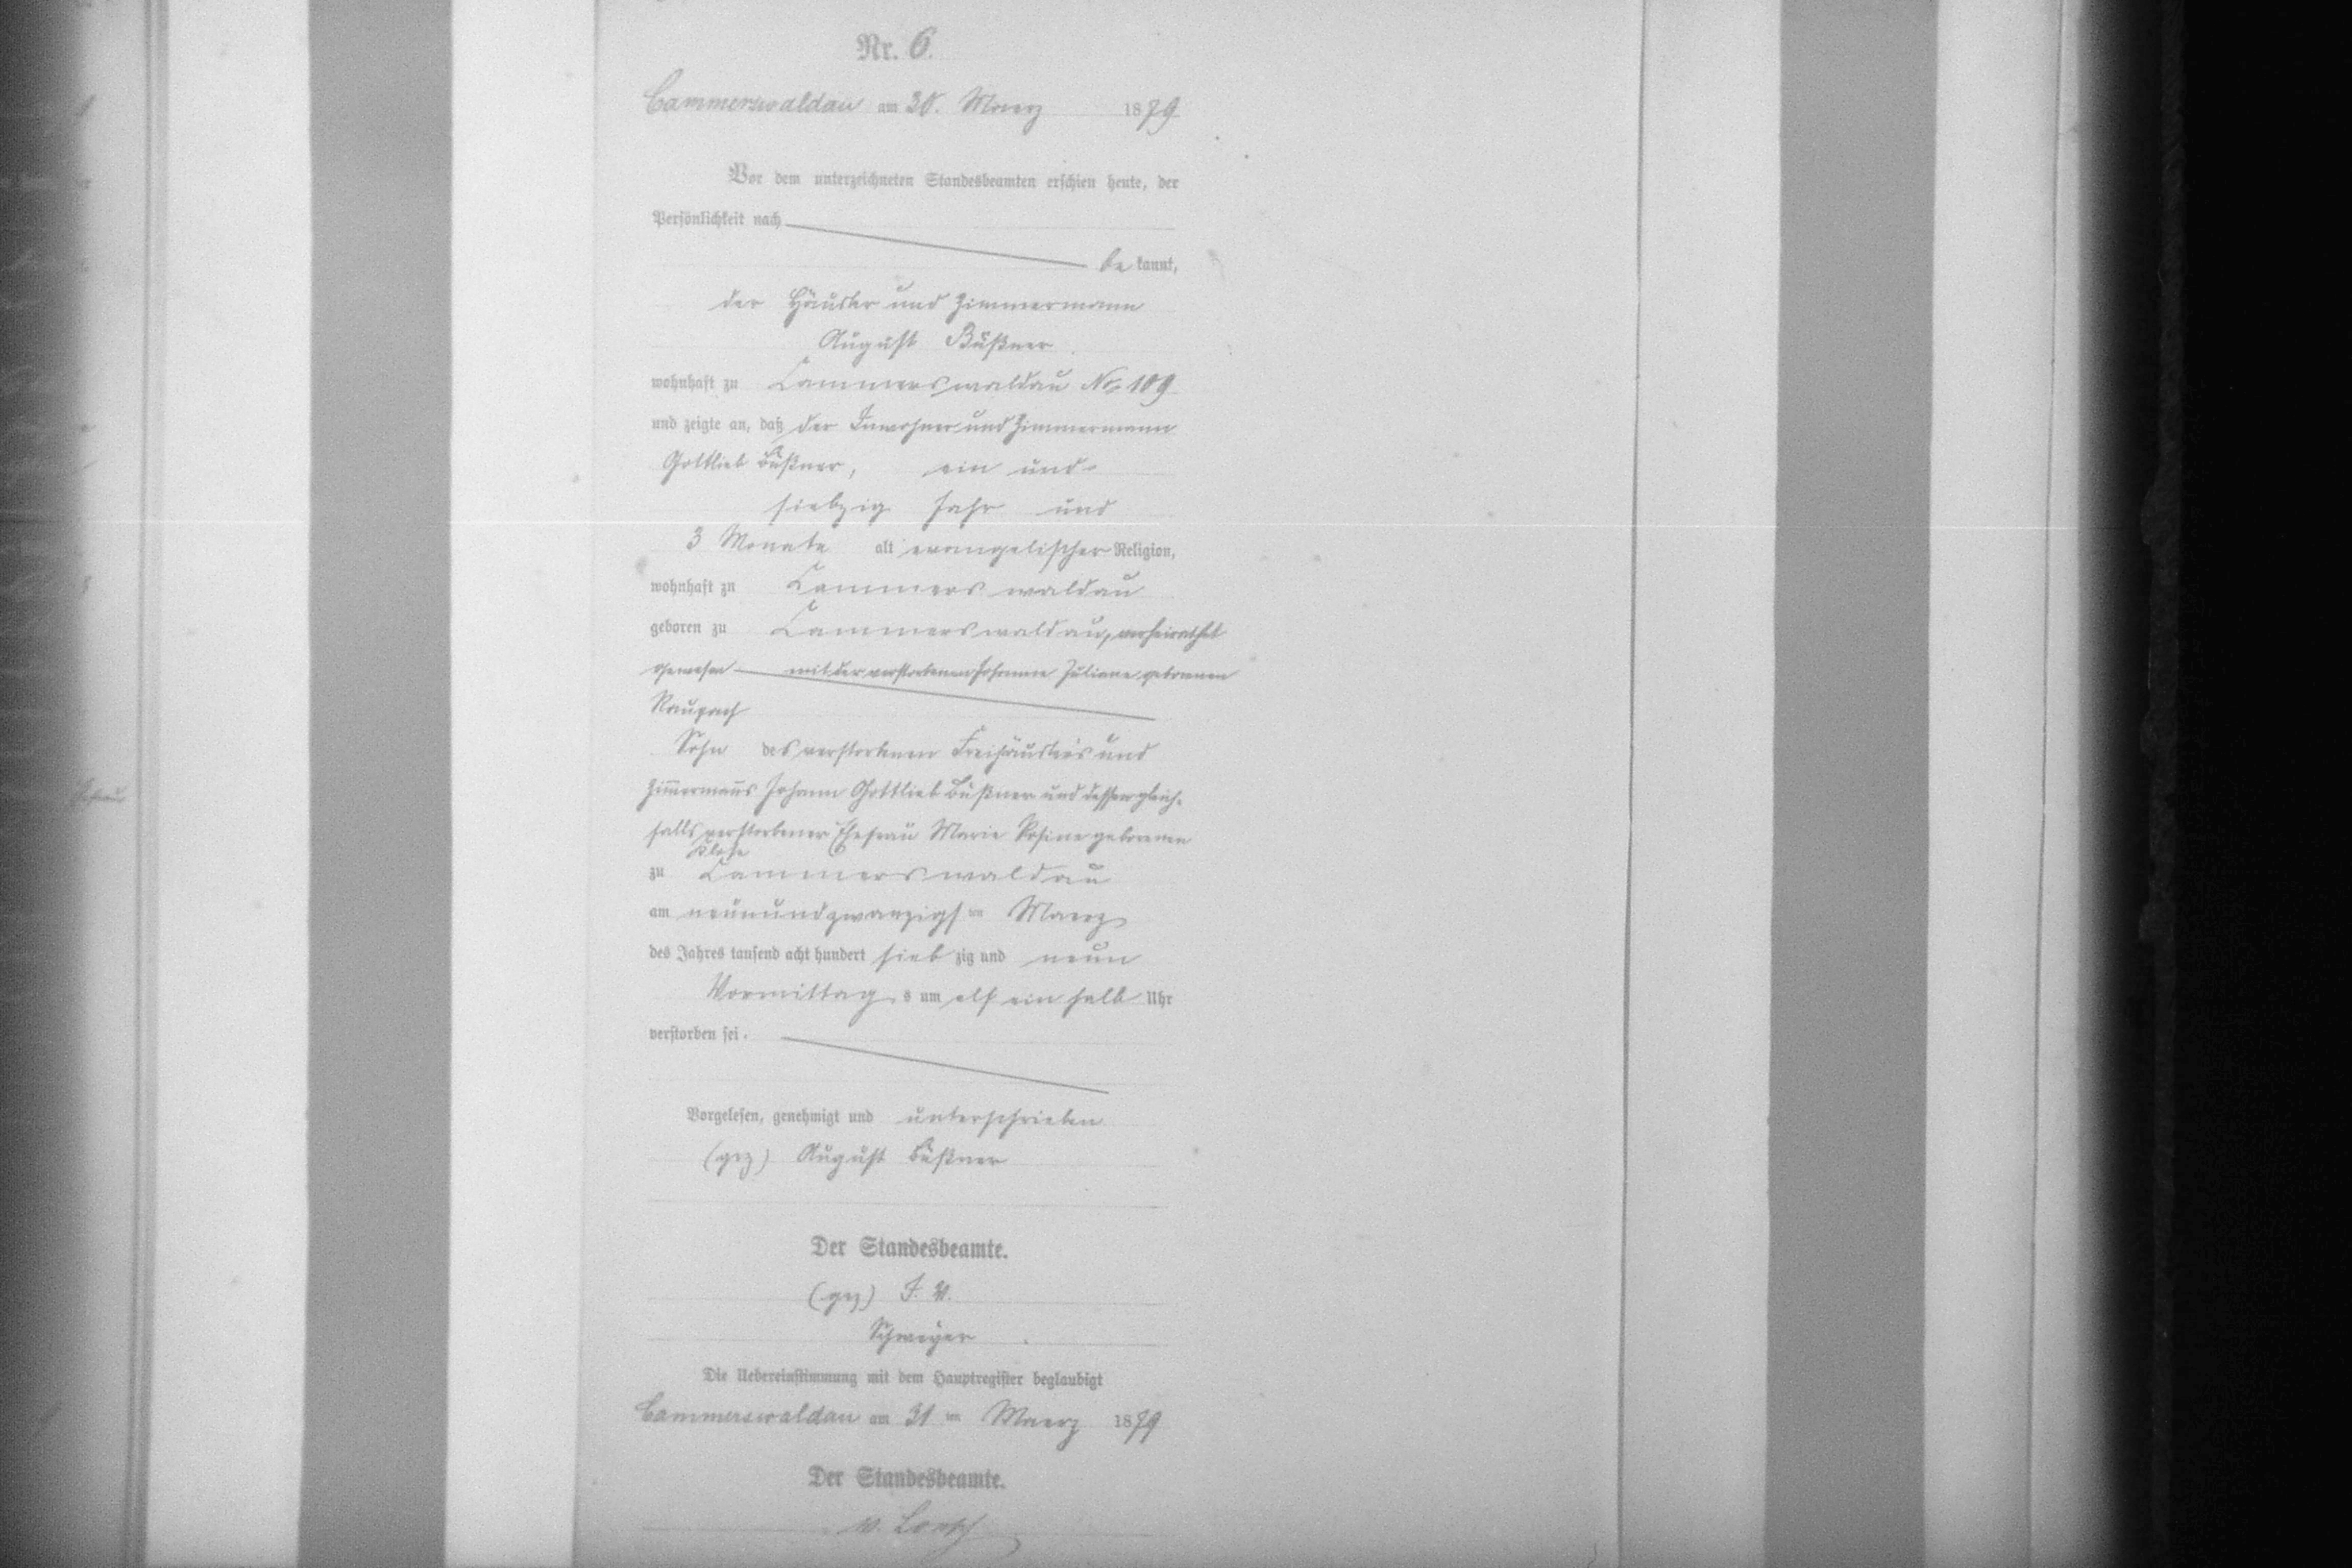 Nr. 6.
Cammerswaldau am 30. Maerz 1879
Vor dem unterzeichneten Standesbeamten erschien heute, der
Persönlichkeit nach
be kannt,
der Häusler und Zimmermann
August Büßner
wohnhaft zu Cammerswaldau No. 109
und zeigte an, daß der Inwohner und Zimmermann
Gottlieb Büßner, ein und
siebzig Jahr und
3 Monate alt evangelischer Religion,
wohnhaft zu Cammerswaldau
geboren zu Cammerswaldau, verheirathet
gewesen mit der verstorbenen Johanne Juliane geborenen
Raupach
Sohn des verstorbenen Freihäuslers und
Zim̄erman̄s Johann Gottlieb Büßner und dessen gleich-
falls verstorbener Ehefrau Marie Rosine geborenen
Klose
zu Cammerswaldau
am neunundzwanzigsten Maerz
des Jahres tausend acht hundert sieb zig und neun
Vormittag s um elf ein halb Uhr
verstorben sei.
Vorgelesen, genehmigt und unterschrieben
(gez) August Büßner
Der Standesbeamte.
(gez) I. V.
Die Uebereinstimmung mit dem Hauptregister beglaubigt
Cammerswaldau am 31ten Maerz 1879
Der Standesbeamte.